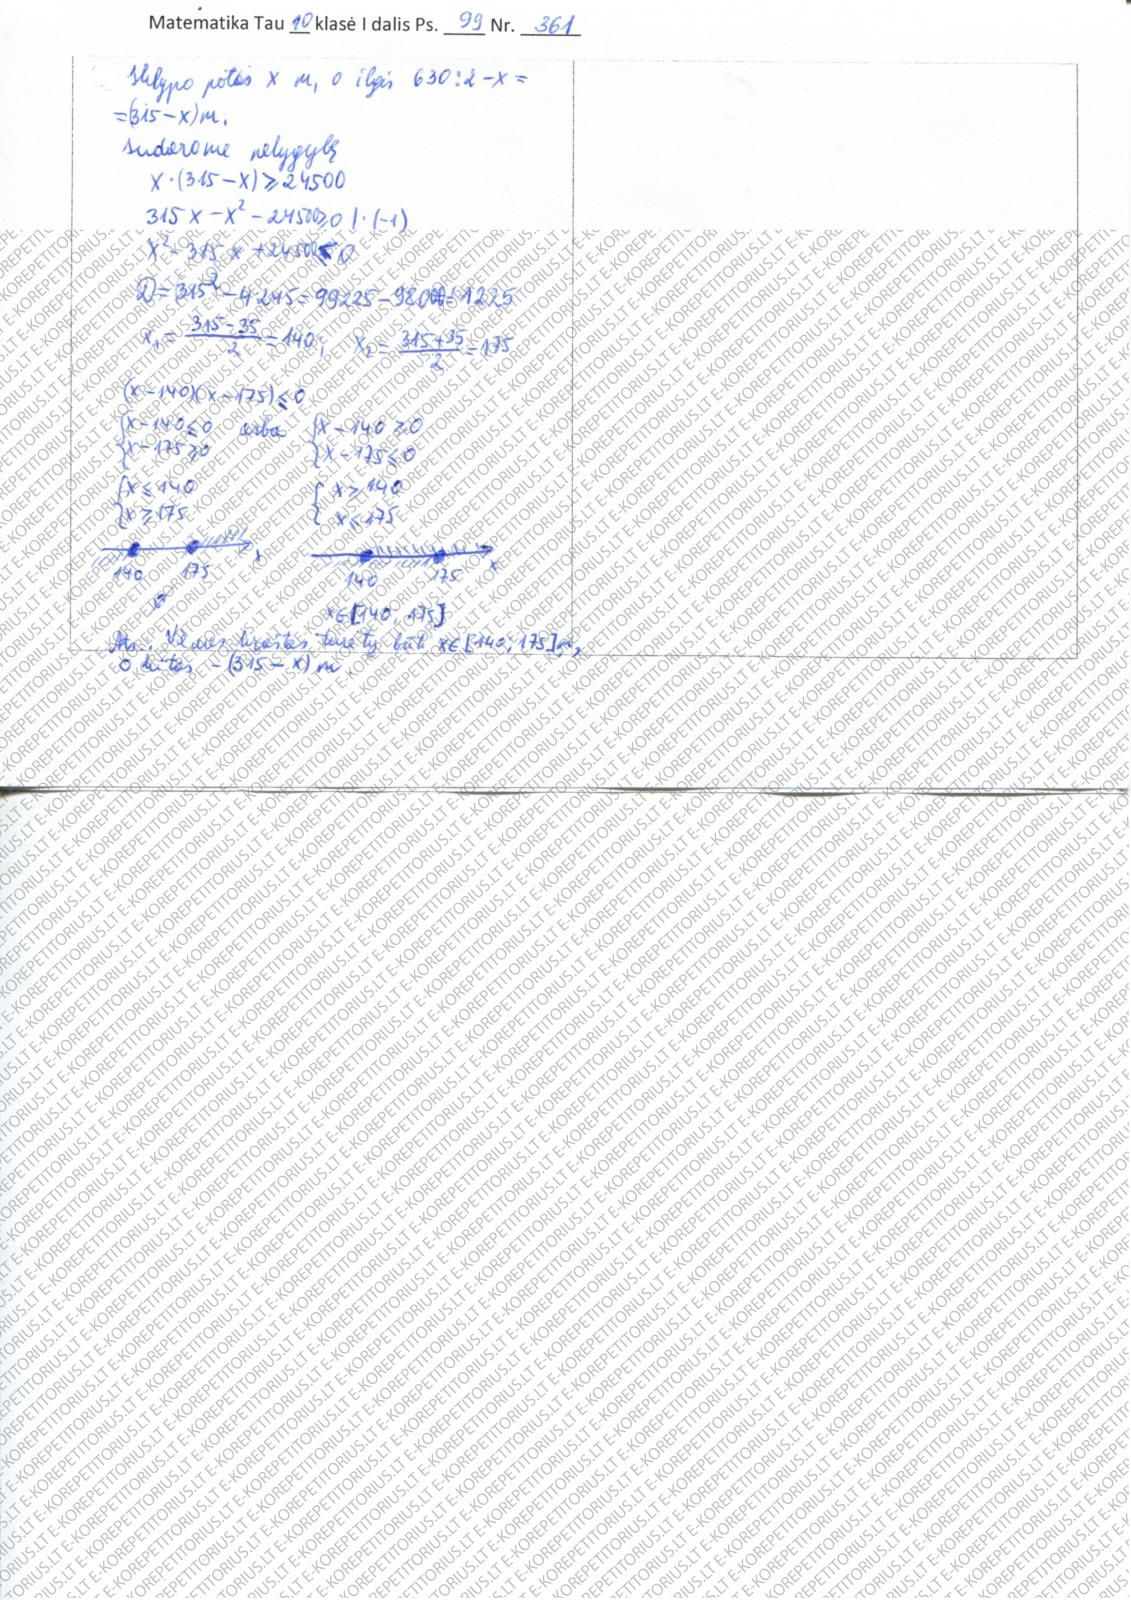 Matematika Tau 10 klasė I dalis Ps. 99 Nr. 361
Sklypo plotis x m, o ilgis 630:2-x=
=(315-x)m.
Sudarome nelygybę
x·(315-x)≥24500
315x-x²-24500≥0 |·(-1)
x²-315x+24500≤0
D=315²-4·245=99225-98000=1225
x₁=(315-35)/2=140; x₂=(315+35)/2=175
(x-140)(x-175)≤0
{x-140≤0 arba {x-140≥0
{x-175≥0 {x-175≤0
{x≤140 {x≥140
{x≥175 {x≤175
140 175 x 140 175 x
∅ x∈[140; 175]
Ats.: Vienas kraštas turėtų būti x∈[140; 175]m,
o kitas -(315-x) m.
E-KOREPETITORIUS.LT